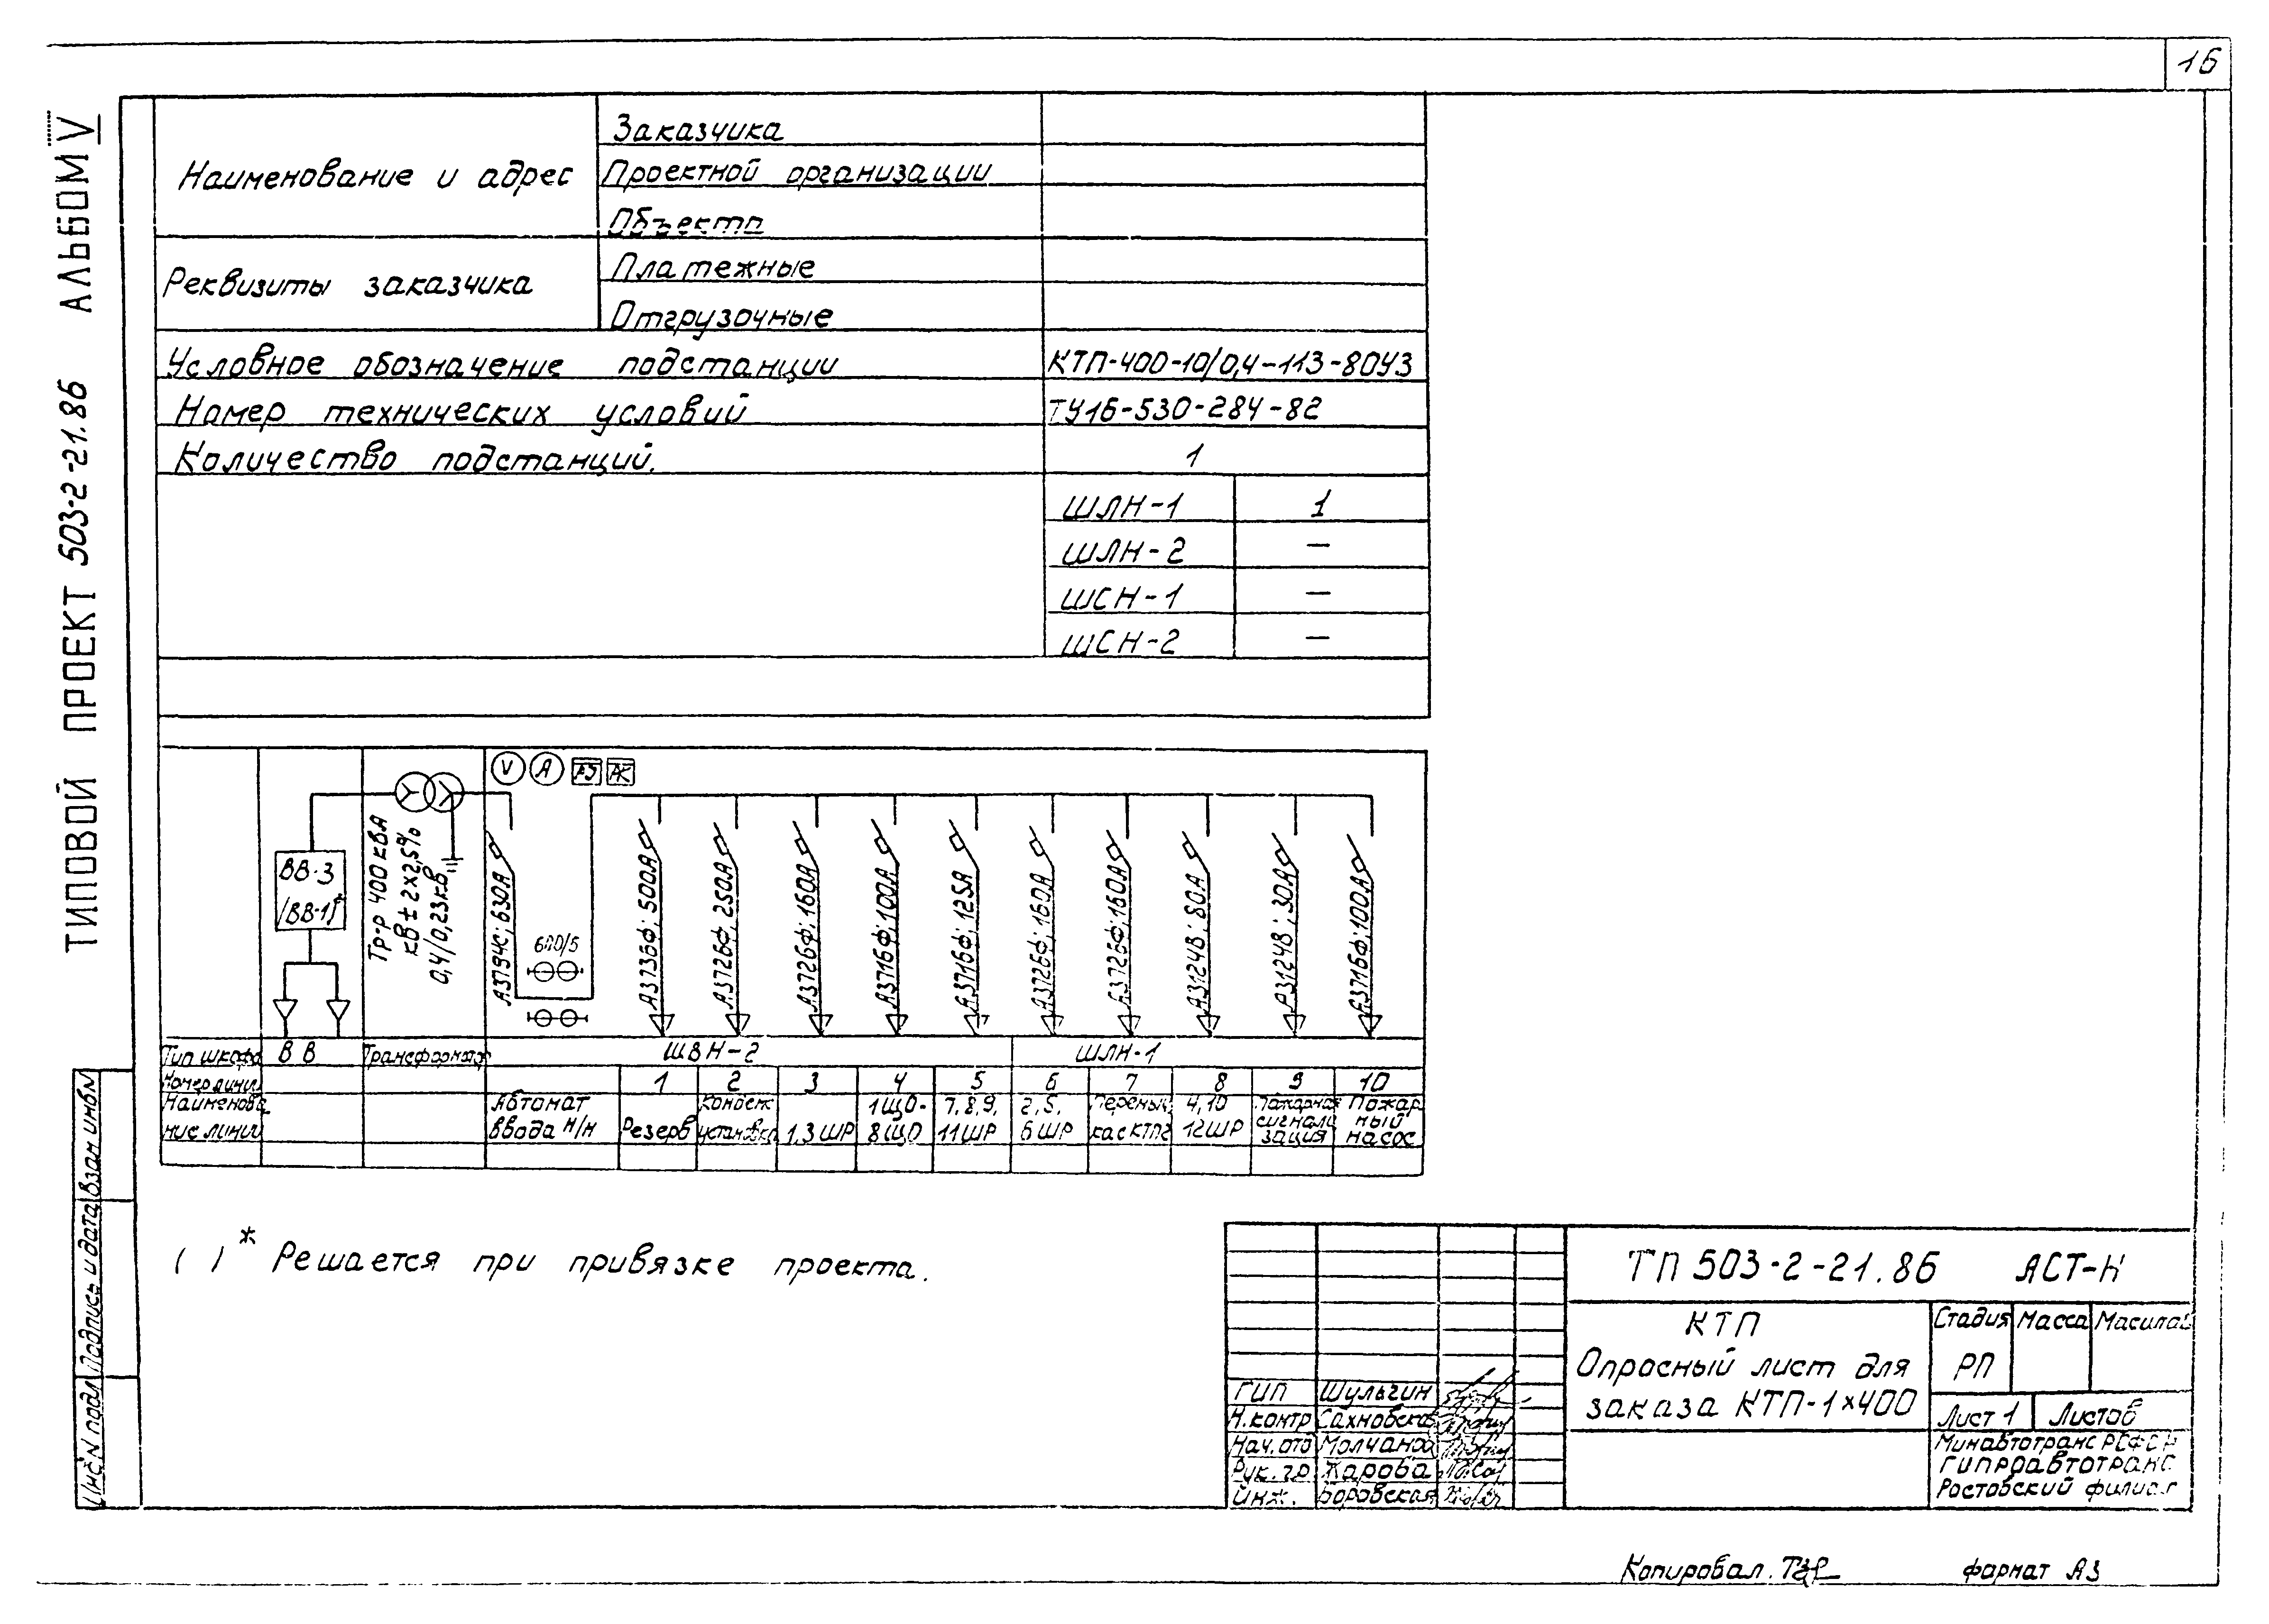 16
ТИПОВОЙ ПРОЕКТ 503-2-21.86 АЛЬБОМ V
Наименование и адрес
Заказчика
Проектной организации
Объекта
Реквизиты заказчика
Платежные
Отгрузочные
Условное обозначение подстанции
КТП-400-10/0,4-113-80У3
Номер технических условий
ТУ16-530-284-82
Количество подстанций.
1
ШЛН-1
1
ШЛН-2
—
ШСН-1
—
ШСН-2
—
V
A
ВВ-3
(ВВ-1)*
Тр-р 400 кВА
кВ ± 2×2,5%
0,4/0,23кВ
А3794С; 630А
600/5
А3736Ф; 500А
А3726Ф; 250А
А3726Ф; 160А
А3716Ф; 100А
А3716Ф; 125А
А3726Ф; 160А
А3726Ф; 160А
А3124В; 80А
А3124В; 30А
А3716Ф; 100А
Тип шкафа
ВВ
Трансформатор
ШВН-2
ШЛН-1
Номер линии
1
2
3
4
5
6
7
8
9
10
Наименова
ние линии
Автомат
ввода н/н
Резерв
Конденс
установка
1,3 ШР
1ЩО-
8ЩО
7, 8, 9,
11ШР
2, 5,
6 ШР
Перемыч
ка с КТП2
4, 10
12ШР
Пожарная
сигнали
зация
Пожар
ный
насос
( )* Решается при привязке проекта.
Инв.N подл
Подпись и дата
Взам инв.N
ТП 503-2-21.86 АСТ-Н
КТП
Опросный лист для
заказа КТП-1×400
Стадия
Масса
Масштаб
РП
Лист 1
Листов
Минавтотранс РСФСР
Гипроавтотранс
Ростовский филиал
ГИП
Шульгин
Н.контр
Сахновска
Нач. отд
Молчанов
Рук. гр
Жарова
Инж.
Боровская
Копировал.
формат А3